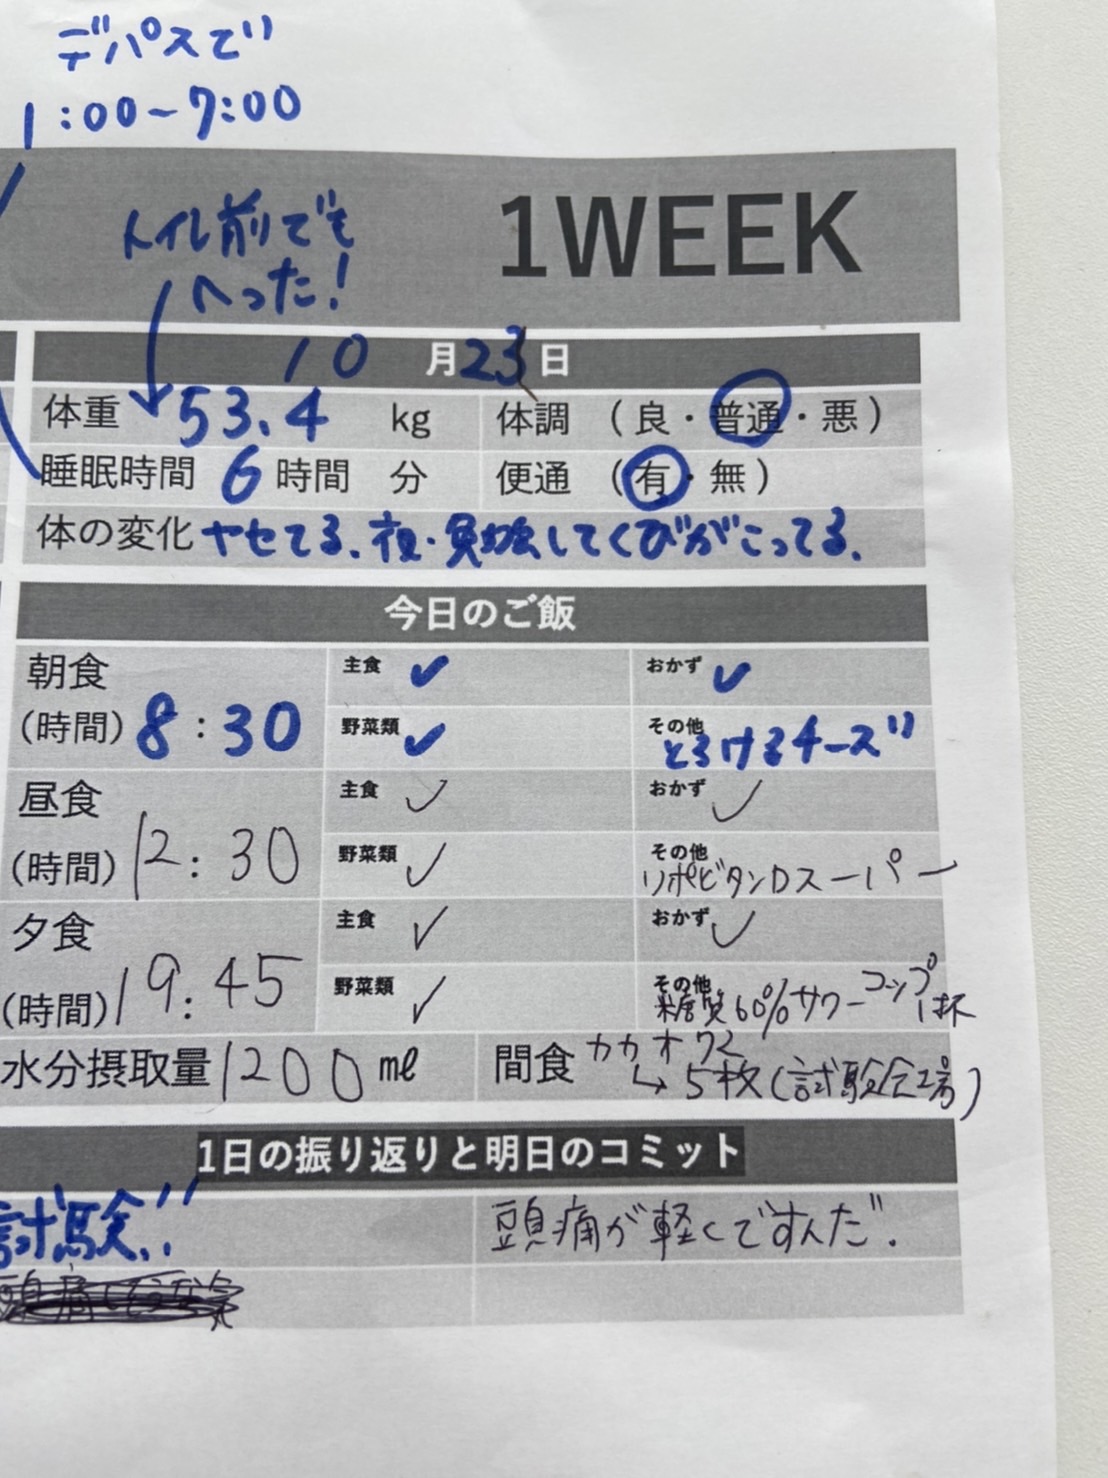 デパスで
1:00〜7:00
トイレ前でも
へった!
1WEEK
10月23日
体重 53.4 kg 体調 (良・普通・悪)
睡眠時間 6時間 分 便通 (有・無)
体の変化 ヤセてる、夜・勉強してくびがこってる。
今日のご飯
朝食
(時間) 8:30
主食 ✓ おかず ✓
野菜類 ✓ その他 とろけるチーズ
昼食
(時間) 12:30
主食 ✓ おかず ✓
野菜類 ✓ その他 リポビタンDスーパー
夕食
(時間) 19:45
主食 ✓ おかず ✓
野菜類 ✓ その他 糖質60%サワーコップ1杯
水分摂取量 1200 ml 間食 カカオ72
↳ 5枚(試験会場)
1日の振り返りと明日のコミット
試験!! 頭痛が軽くですんだ。